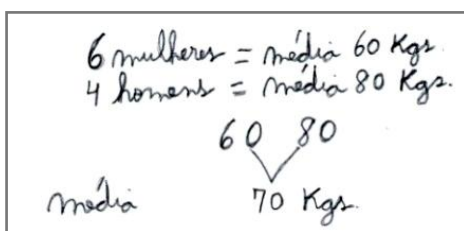 6 mulheres = média 60 Kgs.
4 homens = média 80 Kgs.
60 80
média 70 Kgs.